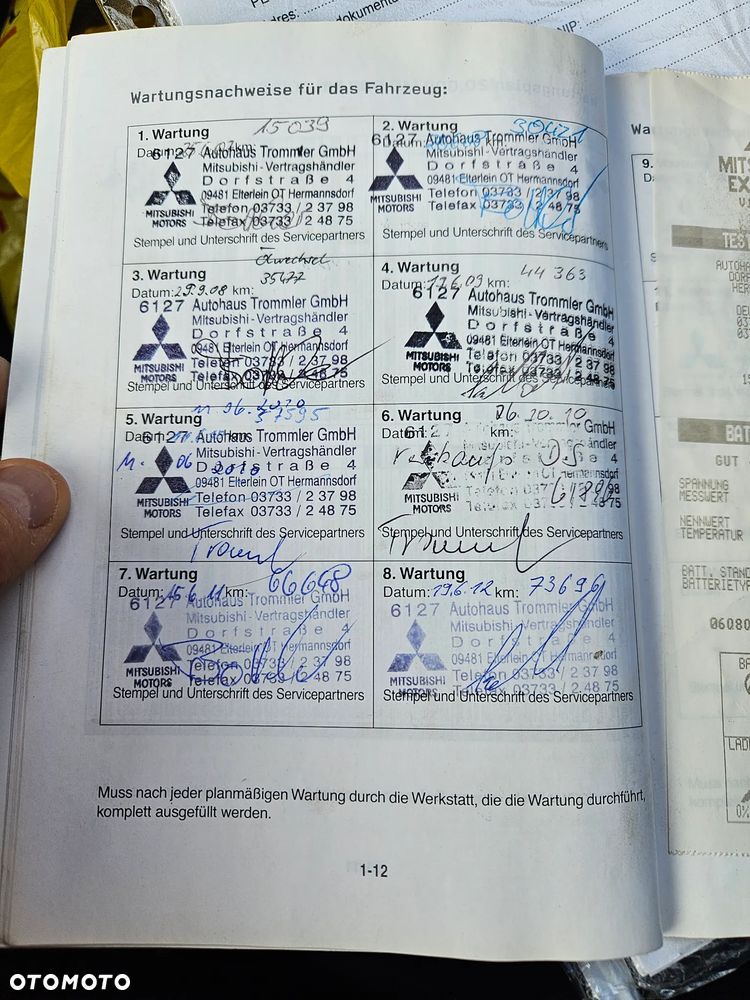 Adres:
dokumentu
NIP:
Wartungsnachweise für das Fahrzeug:
1. Wartung
15039
Datum: km:
6127 Autohaus Trommler GmbH
Mitsubishi-Vertragshändler
Dorfstraße 4
09481 Elterlein OT Hermannsdorf
Telefon 03733 / 2 37 98
Telefax 03733 / 2 48 75
MITSUBISHI
MOTORS
Stempel und Unterschrift des Servicepartners
2. Wartung
Datum: km:
6127 Autohaus Trommler GmbH
Mitsubishi-Vertragshändler
Dorfstraße 4
09481 Elterlein OT Hermannsdorf
Telefon 03733 / 2 37 98
Telefax 03733 / 2 48 75
MITSUBISHI
MOTORS
Stempel und Unterschrift des Servicepartners
Ölwechsel
3. Wartung
35477
Datum: 29.9.08 km:
6127 Autohaus Trommler GmbH
Mitsubishi-Vertragshändler
Dorfstraße 4
09481 Elterlein OT Hermannsdorf
Telefon 03733 / 2 37 98
Telefax 03733 / 2 48 75
MITSUBISHI
MOTORS
Stempel und Unterschrift des Servicepartners
4. Wartung
44 363
Datum: 17.6.09 km:
6127 Autohaus Trommler GmbH
Mitsubishi-Vertragshändler
Dorfstraße 4
09481 Elterlein OT Hermannsdorf
Telefon 03733 / 2 37 98
Telefax 03733 / 2 48 75
MITSUBISHI
MOTORS
Stempel und Unterschrift des Servicepartners
5. Wartung
57595
Datum: km:
6127 Autohaus Trommler GmbH
Mitsubishi-Vertragshändler
11. 06 2010
Dorfstraße 4
09481 Elterlein OT Hermannsdorf
Telefon 03733 / 2 37 98
Telefax 03733 / 2 48 75
MITSUBISHI
MOTORS
Stempel und Unterschrift des Servicepartners
6. Wartung
26.10.10
Datum: km:
6127 GmbH
händler
Dorfstraße 4
OT Hermannsdorf
MITSUBISHI
MOTORS
Stempel und Unterschrift des Servicepartners
7. Wartung
66648
Datum: 15.6.11 km:
6127 Autohaus Trommler GmbH
Mitsubishi-Vertragshändler
Dorfstraße 4
09481 Elterlein OT Hermannsdorf
Telefon 03733 / 2 37 98
Telefax 03733 / 2 48 75
MITSUBISHI
MOTORS
Stempel und Unterschrift des Servicepartners
8. Wartung
Datum: 19.6.12 km: 73696
6127 Autohaus Trommler GmbH
Mitsubishi-Vertragshändler
Dorfstraße 4
09481 Elterlein OT Hermannsdorf
Telefon 03733 / 2 37 98
Telefax 03733 / 2 48 75
MITSUBISHI
MOTORS
Stempel und Unterschrift des Servicepartners
Muss nach jeder planmäßigen Wartung durch die Werkstatt, die die Wartung durchführt,
komplett ausgefüllt werden.
1-12
9.
GUT
SPANNUNG
MESSWERT
NENNWERT
TEMPERATUR
BATT. STAND
OTOMOTO